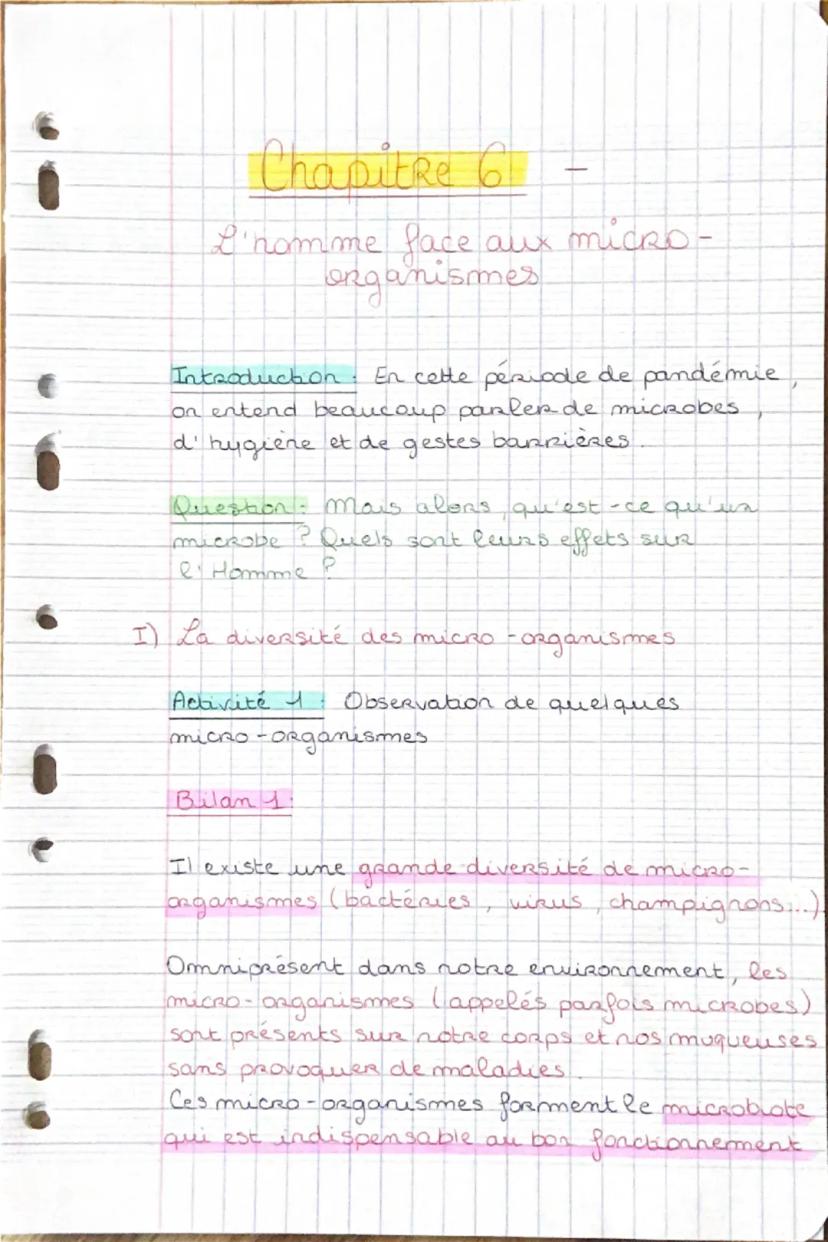 Chapitre 6 -
L'homme face aux micro-
organismes
Introduction : En cette période de pandémie,
on entend beaucoup parler de microbes,
d'hygiène et de gestes barrières.
Question : Mais alors, qu'est-ce qu'un
microbe ? Quels sont leurs effets sur
l'Homme ?
I) La diversité des micro-organismes
Activité 1 : Observation de quelques
micro-organismes
Bilan 1 :
Il existe une grande diversité de micro-
organismes (bactéries, virus, champignons...)
Omniprésent dans notre environnement, les
micro-organismes (appelés parfois microbes)
sont présents sur notre corps et nos muqueuses
sans provoquer de maladies.
Ces micro-organismes forment le microbiote
qui est indispensable au bon fonctionnement